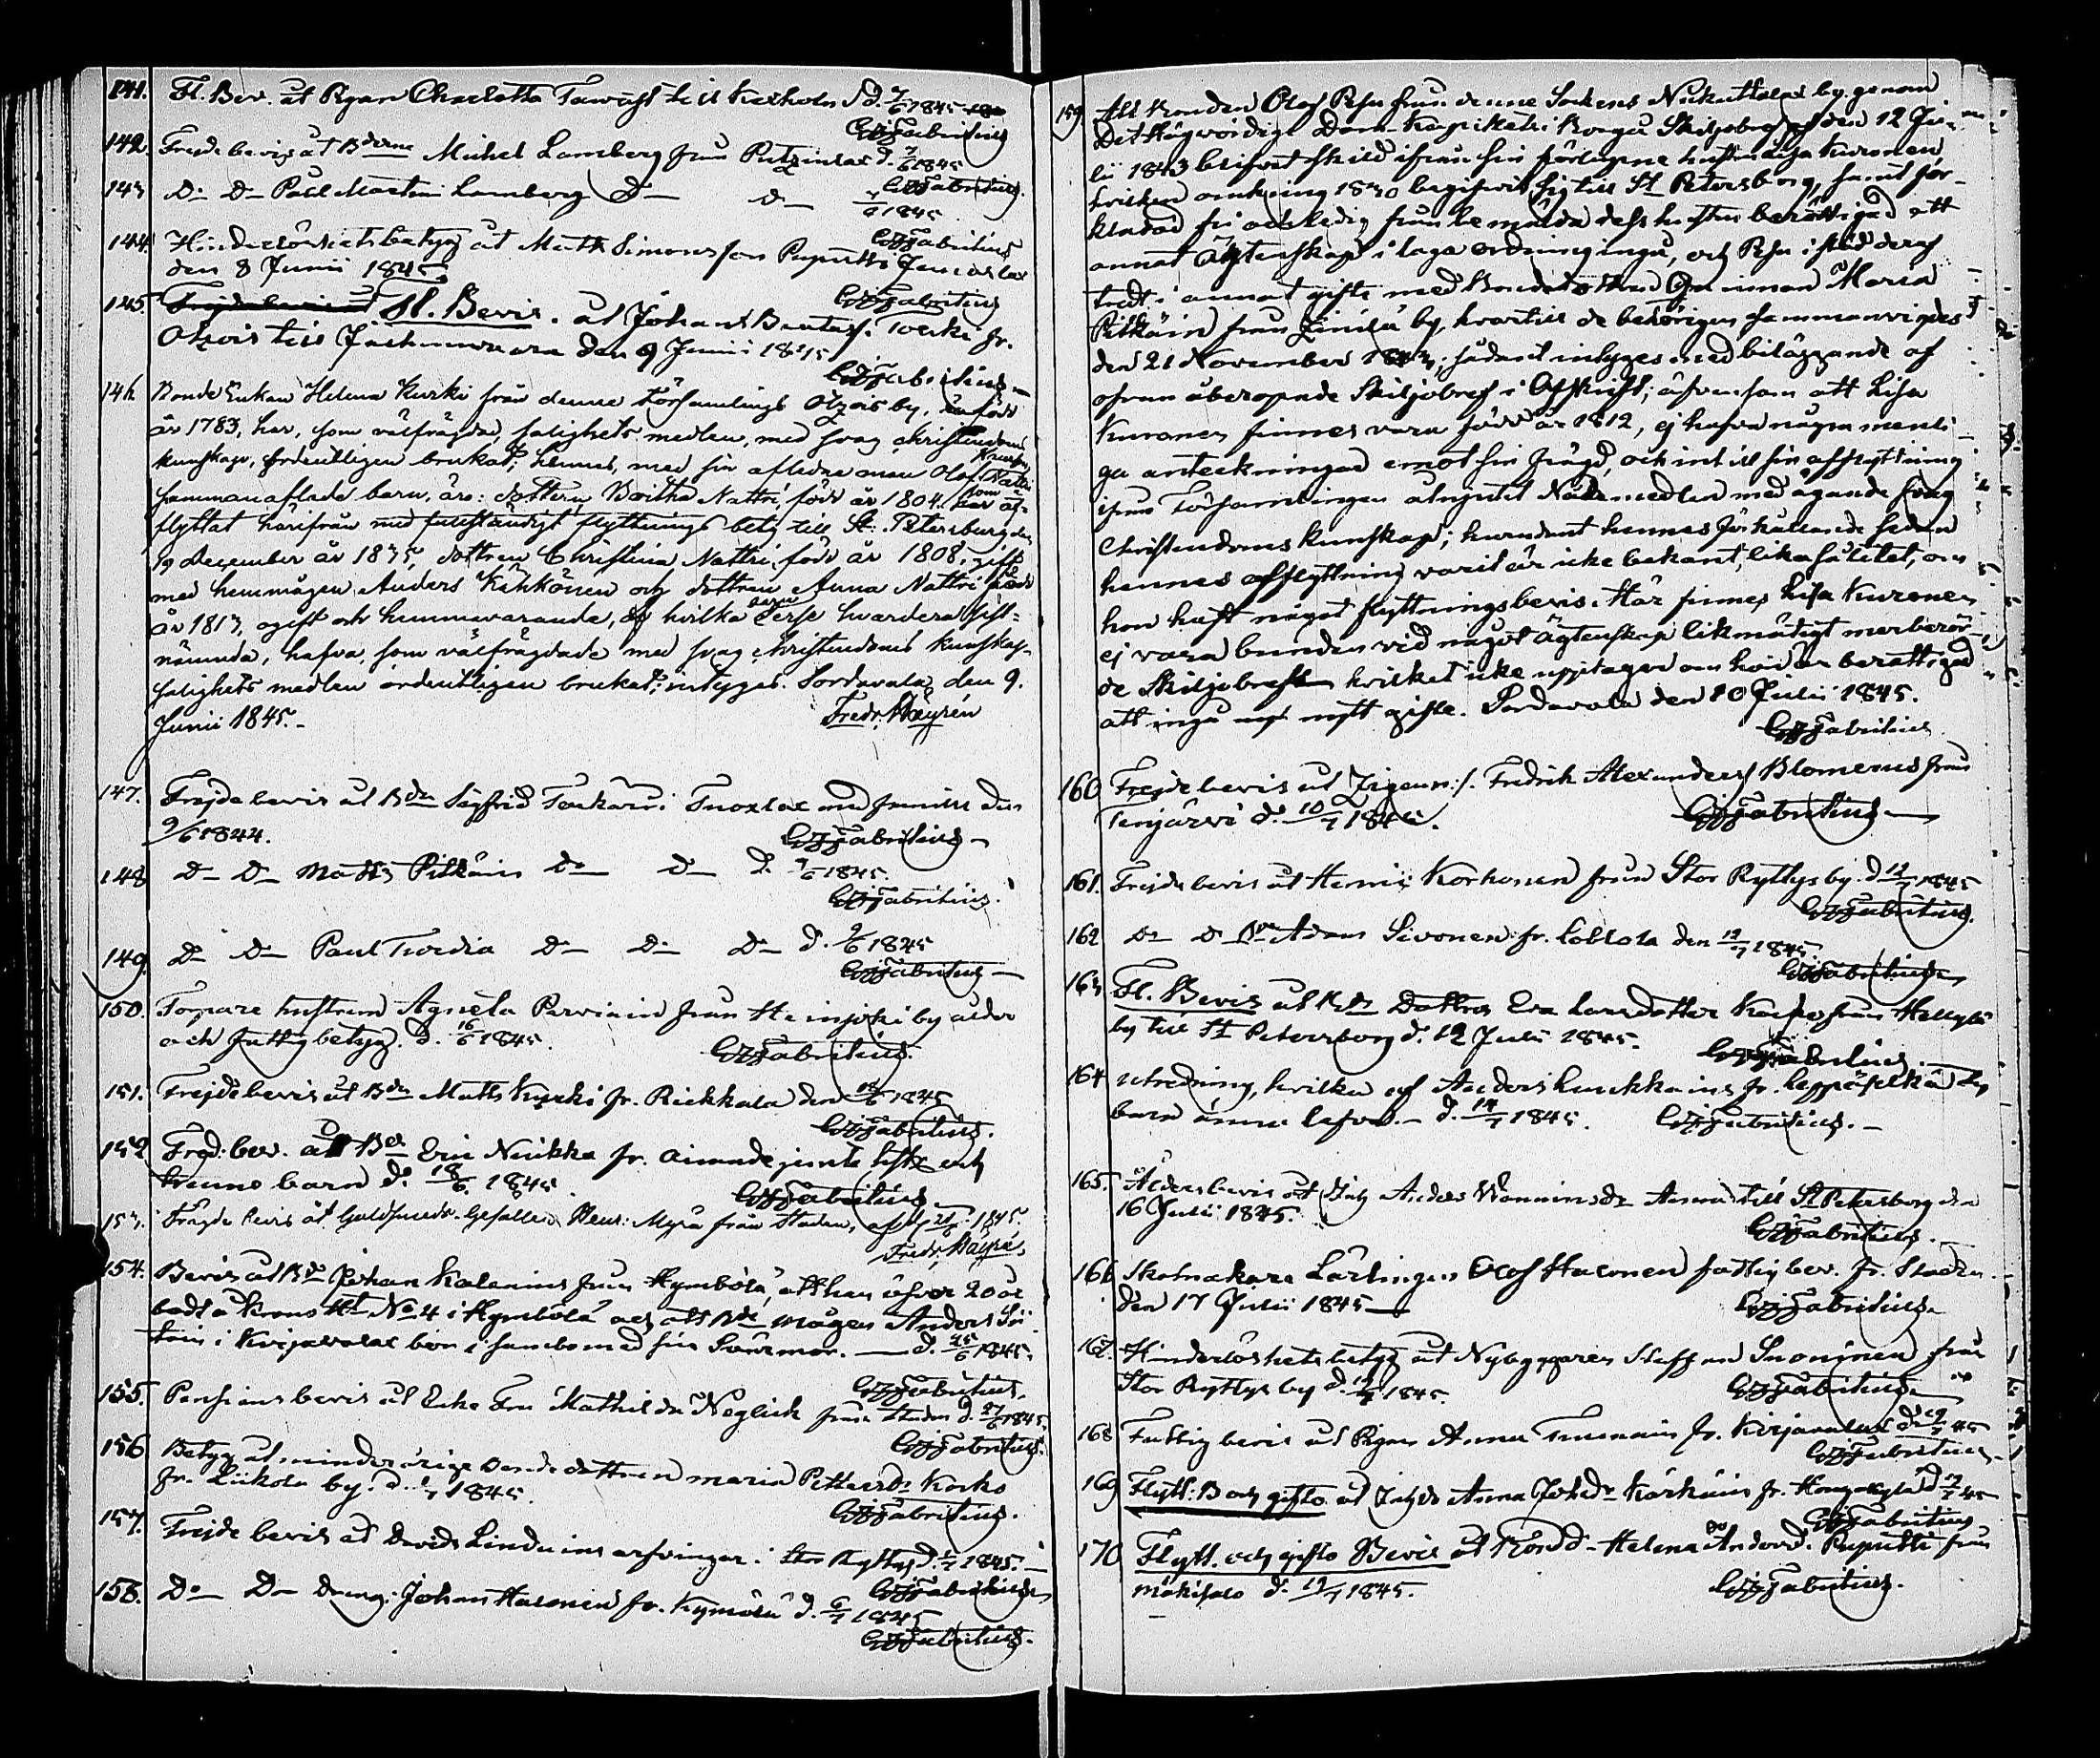 141. Fl. Bev. åt Pigan Charlotta Tawast till Kexholm d. 7/6 1845
CGFabritius
142. Frejdebevis åt Bderne Michel Lamberg från Putzinlax d. 7/6 1845
CGFabritius
143 D– D– Påhl Martin Lamberg D– d– 7/6 1845
CGFabritius
144. Hinderlöshetsbetyg åt Matts Simonsson Puputti
den 8 Junii 1845
CGFabritius
145. Fl. Bevis. åt Johan Bertas. Torkko fr.
Otzois till den 9 Junii 1845
CGFabritius
146 Bonde Enkan Helena Kurki från denne Församlings Otzois by, född
år 1783, har, som välfrägdad, salighets medlen, med svag christendoms
kunskap, ordentligen brukat; hennes, med sin aflidne man Olof Nattri
sammanaflade barn, äro: dottern Boitha Nattri, född år 1804, som
flyttat härifrån med fullständigt flyttnings betyg till St. Petersburg den
19 December år 1835, dottren Christina Nattri, född år 1808, gift
med hemmågen Anders Kähkönen och dottren Anna Nattri född
år 1813, ogift och hemmavarande, af hvilka barn hvardera sist-
nämnda, hafva, som välfrägdade med svag christendoms kunskap
salighets medlen ordentligen brukat; intygas. Sordavala den 9.
Junii 1845.
Fredr. Wäyrén
147. Frejdebevis åt Bdn Sigfrid Tuoxlax med familie den
9/6 1844.
CGFabritius
148 D– D– Matts Pitkäin D– D– d. 9/6 1845.
CGFabritius
149. D– D– Paul Tiordia D– D– D– d. 9/6 1845
CGFabritius
150. Torpare hustrun Agneta Parviain från Heinjoki by ålder
och fattigbetyg. d. 16/6 1845.
CGFabritius
151. Frejdebevis åt Bdn Matts Kurki fr. Riekkala den 1845
CGFabritius.
152 Frejd. bev. åt Bdn Eric Nuikka fr. jemte hustru och
trenne barn d. 18/6 1845
CGFabritius
153. Frägde bevis åt Guldsmeds Gesällen Myrå från Staden, 1845.
Fredr. Wäyrén
154. Bevis åt Bdn Johan Kalenius från Hymbölä, att han öfver 20 år
bodt å Krono Ht No 4 i Hymbölä och att Bde mågen Anders
i Kirjavalax bor i sambo med sin Svärmor. d. 25/6 1845.
CGFabritius.
155. Pensions bevis åt Enke Fru Mathilda Neglick från Staden d. 27/6 1845
CGFabritius.
156 Betyg åt minderåriga Bonde dottren Maria Pettersdr Korko
fr. Liikola by. d. 1/7 1845.
CGFabritius.
157. Frejdebevis åt David arfvingar i Stor Ryttys d. 1/7 1845.
CGFabritius
158. D– D– Dräng. Johan Halonen fr. Kymölä d. 6/7 1845
CGFabritius.
159 Att Bonden Olof Pesu från denne Sockens Niukuttalax by, genom
Det Högvördige Dom-Kapitlets i Borgå Skiljobref af den 12 Ju-
lii 1843 blifvit skild ifrån sin förlupne hustru Lisa Kuronen,
hvilken omkring 1830 begifvit sig till St Petersborg, samt för-
klarad fri och ledig från bemälda dess hustru berättigad att
annat ägtenskap i laga ordning ingå, och Pesu i stöd deraf
trädt i annat gifte med Bondedottren Maria
Pitkäin från by, hvartill de behörigen sammanvigdes
den 21 November 1843; sådant intygas med biläggande af
ofvan åberopade Skiljobref i Afskrift; äfvensom att Lisa
Kuronen finnes vara född år 1812, ej hafva några menli-
ga anteckningar emot sin frägd, och intill sin afflyttning
ifrån Församlingen åtnjutit Nådemedlen med ägande svag
Christendoms kunskap; hurudant hennes förhållande sedan
hennes afflyttning varit är icke bekant, lika så litet, om
hon haft något flyttningsbevis. Här finnes Lisa Kuronen
ej vara bunden vid något ägtenskap likmätigt merberör-
de Skiljobref hvilket icke upptager om hon är berättigad
att ingå nytt gifte. Sordavala den 10 Julii 1845.
CGFabritius
160 Frejdebevis åt Zigenn:s. Fredrik Alexanders Blomerus från
Tenjärvi d. 10/7 1845.
CGFabritius
161. Frejdebevis åt Henric Korhonen från Stor Ryttys by. d. 12/7 1845
CGFabritius.
162 D– D– Adam Sivonen fr. Lohlola den 12/7 1845.
CGFabritius
163 Fl. Bevis åt Bde Dottren Eva Larsdotter Karpo från Hellylä
by till St Petersborg d. 12 Julii 1845.
CGFabritius
164 Utredning, hvilka af Anders fr. Leppäselkä by
barn ännu lefva. d. 14/7 1845.
CGFabritius.
165. Åldersbevis åt Anders dr Anna till St Petersborg den
16 Julii 1845.
CGFabritius.
166 Skomakare Lärlingen Olof Halonen fattig bev. fr. Staden.
den 17 Julii 1845
CGFabritius.
167. Hinderlöshetsbetyg åt Nybyggaren Staffan Suoninen från
Stor Ryttys by d. 19/7 1845.
CGFabritius
168 Fattig bevis åt Pigan Anna fr. Kirjavalax d. 19/7 45
CGFabritius
169 Flytt: B och gifto åt Anna Johdr Karhuin fr. d. 19/7 45
CGFabritius
170 Flytt. och gifto Bevis åt Helena Andersd. Puputti från
Mäkisalo d. 19/7 1845.
CGFabritius.